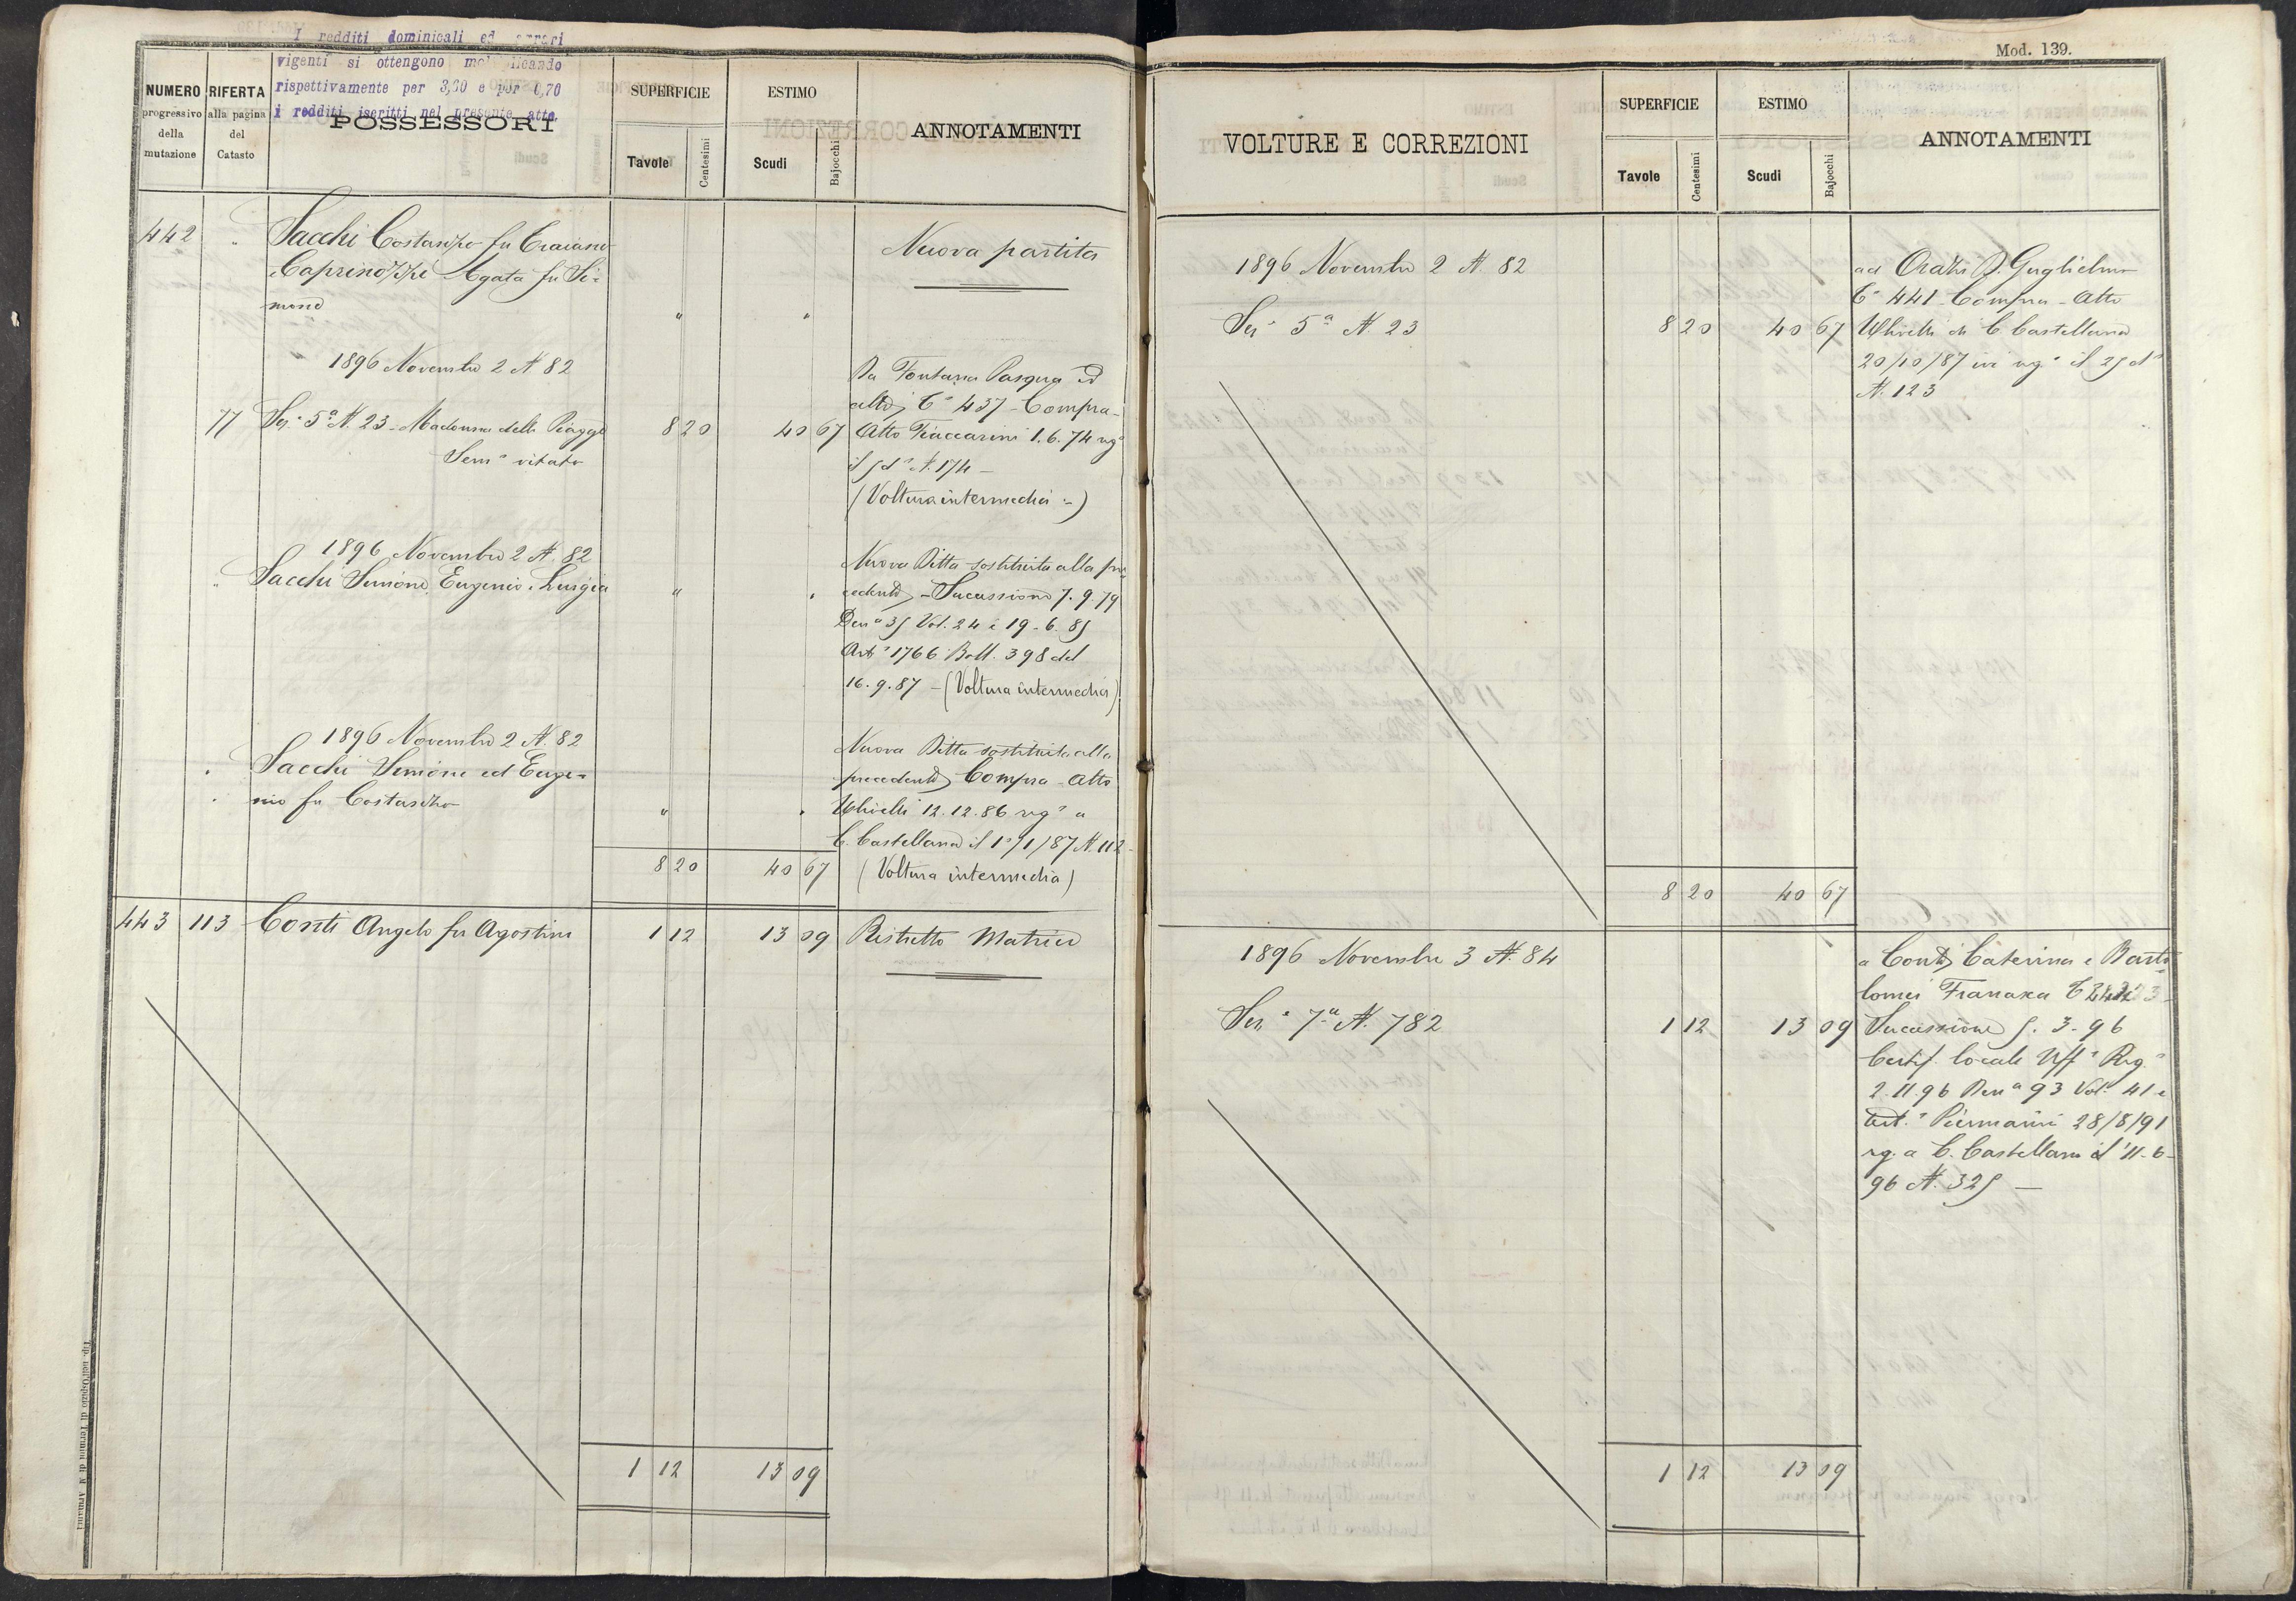 I redditi dominicali ed agrari
vigenti si ottengono moltiplicando
rispettivamente per 3,60 e per 0,70
i redditi iscritti nel presente atto.
NUMERO
progressivo
della
mutazione
RIFERTA
alla pagina
del
Catasto
POSSESSORI
SUPERFICIE
Tavole
Centesimi
ESTIMO
Scudi
Bajocchi
ANNOTAMENTI
442 " Sacchi Costanzo fu Traiano
e Caprinozzi Agata fu Si=
mone " "
Nuova partita
1896 Novembre 2 N. 82
77 Sez.e 5a N. 23 - Madonna delle Piagge 8 20 40 67
Semo vitato
Da Fontana Pasqua ed
altri Ca 437 - Compra -
Atto Fiaccarini 1.6.74 rego
il 5 do N. 174 -
(Voltura intermedia =)
1896 Novembre 2 N. 82
" Sacchi Simone, Eugenio e Luigia " "
Nuova Ditta sostituita alla pre
cedente - Successione 7.9.79
Dena 35 Vol. 24 e 19-6-85
Arto 1766 Boll. 398 del
16.9.87 - (Voltura intermedia)
1896 Novembre 2 N. 82
" Sacchi Simone ed Euge=
" nio fu Costanzo " "
Nuova Ditta sostituita alla
precedente Compra - Atto
Ulivelli 12.12.86 rego a
C. Castellana il 1o/1/87 N. 112 -
(Voltura intermedia)
8 20 40 67
443 113 Conti Angelo fu Agostino 1 12 13 09 Ristretto Matrice
1 12 13 09
Tip. dell'Ospizio di Termini di M. Armanni
Mod. 139.
VOLTURE E CORREZIONI
SUPERFICIE
Tavole
Centesimi
ESTIMO
Scudi
Bajocchi
ANNOTAMENTI
1896 Novembre 2 N. 82
Sez.e 5a N. 23 8 20 40 67
ad Orazi D. Guglielmo
Ca 441 - Compra - Atto
Ulivelli di C. Castellana
20/10/87 ivi rego il 25 do
N. 123
8 20 40 67
1896 Novembre 3 N. 84
Sez.e 7a N. 782 1 12 13 09
a Conti Caterina e Barto
lomei Franasca C
Successione 5.3-96
Certif. locale Uffo Rego
2.11.96 Dena 93 Vol. 41 e
test.o Piermarini 28/8/91
rg. a C. Castellana il 11-6-
96 N. 325 -
1 12 13 09